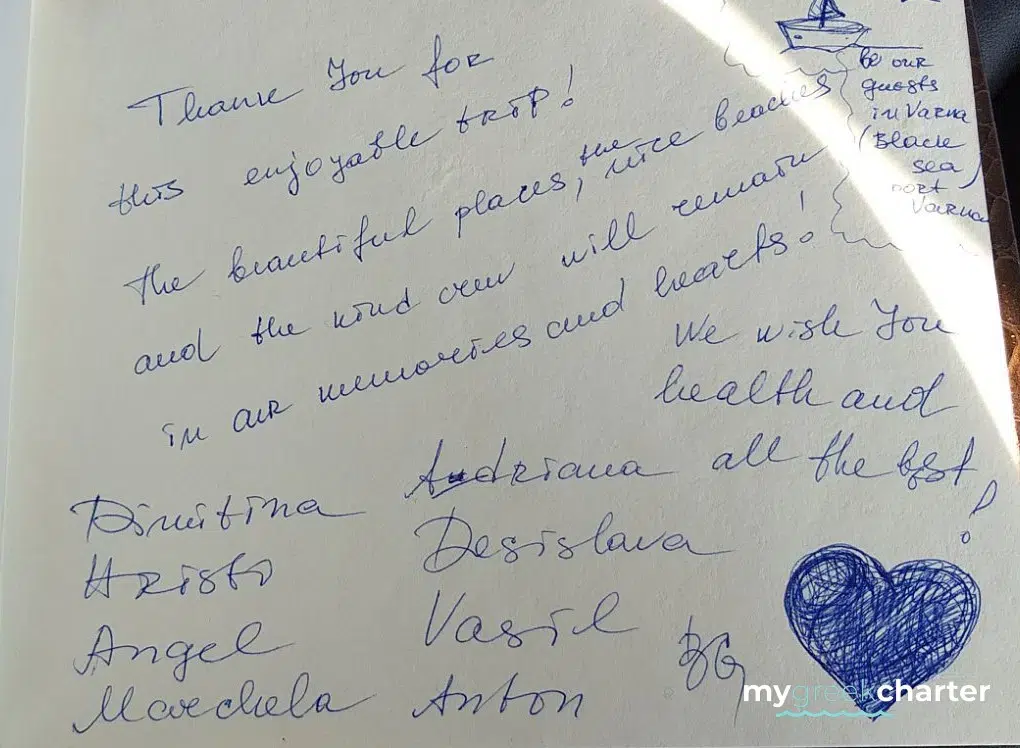 Thank You for
this enjoyable trip!
The beautiful places, the nice beaches
and the kind crew will remain
in our memories and hearts!
be our
guests
in Varna
(Black
sea
port
Varna)
We wish You
health and
all the best!
Dimitrina
Hristo
Angel
Marchela
Andriana
Desislava
Vasil
Anton
BG
mygreekcharter